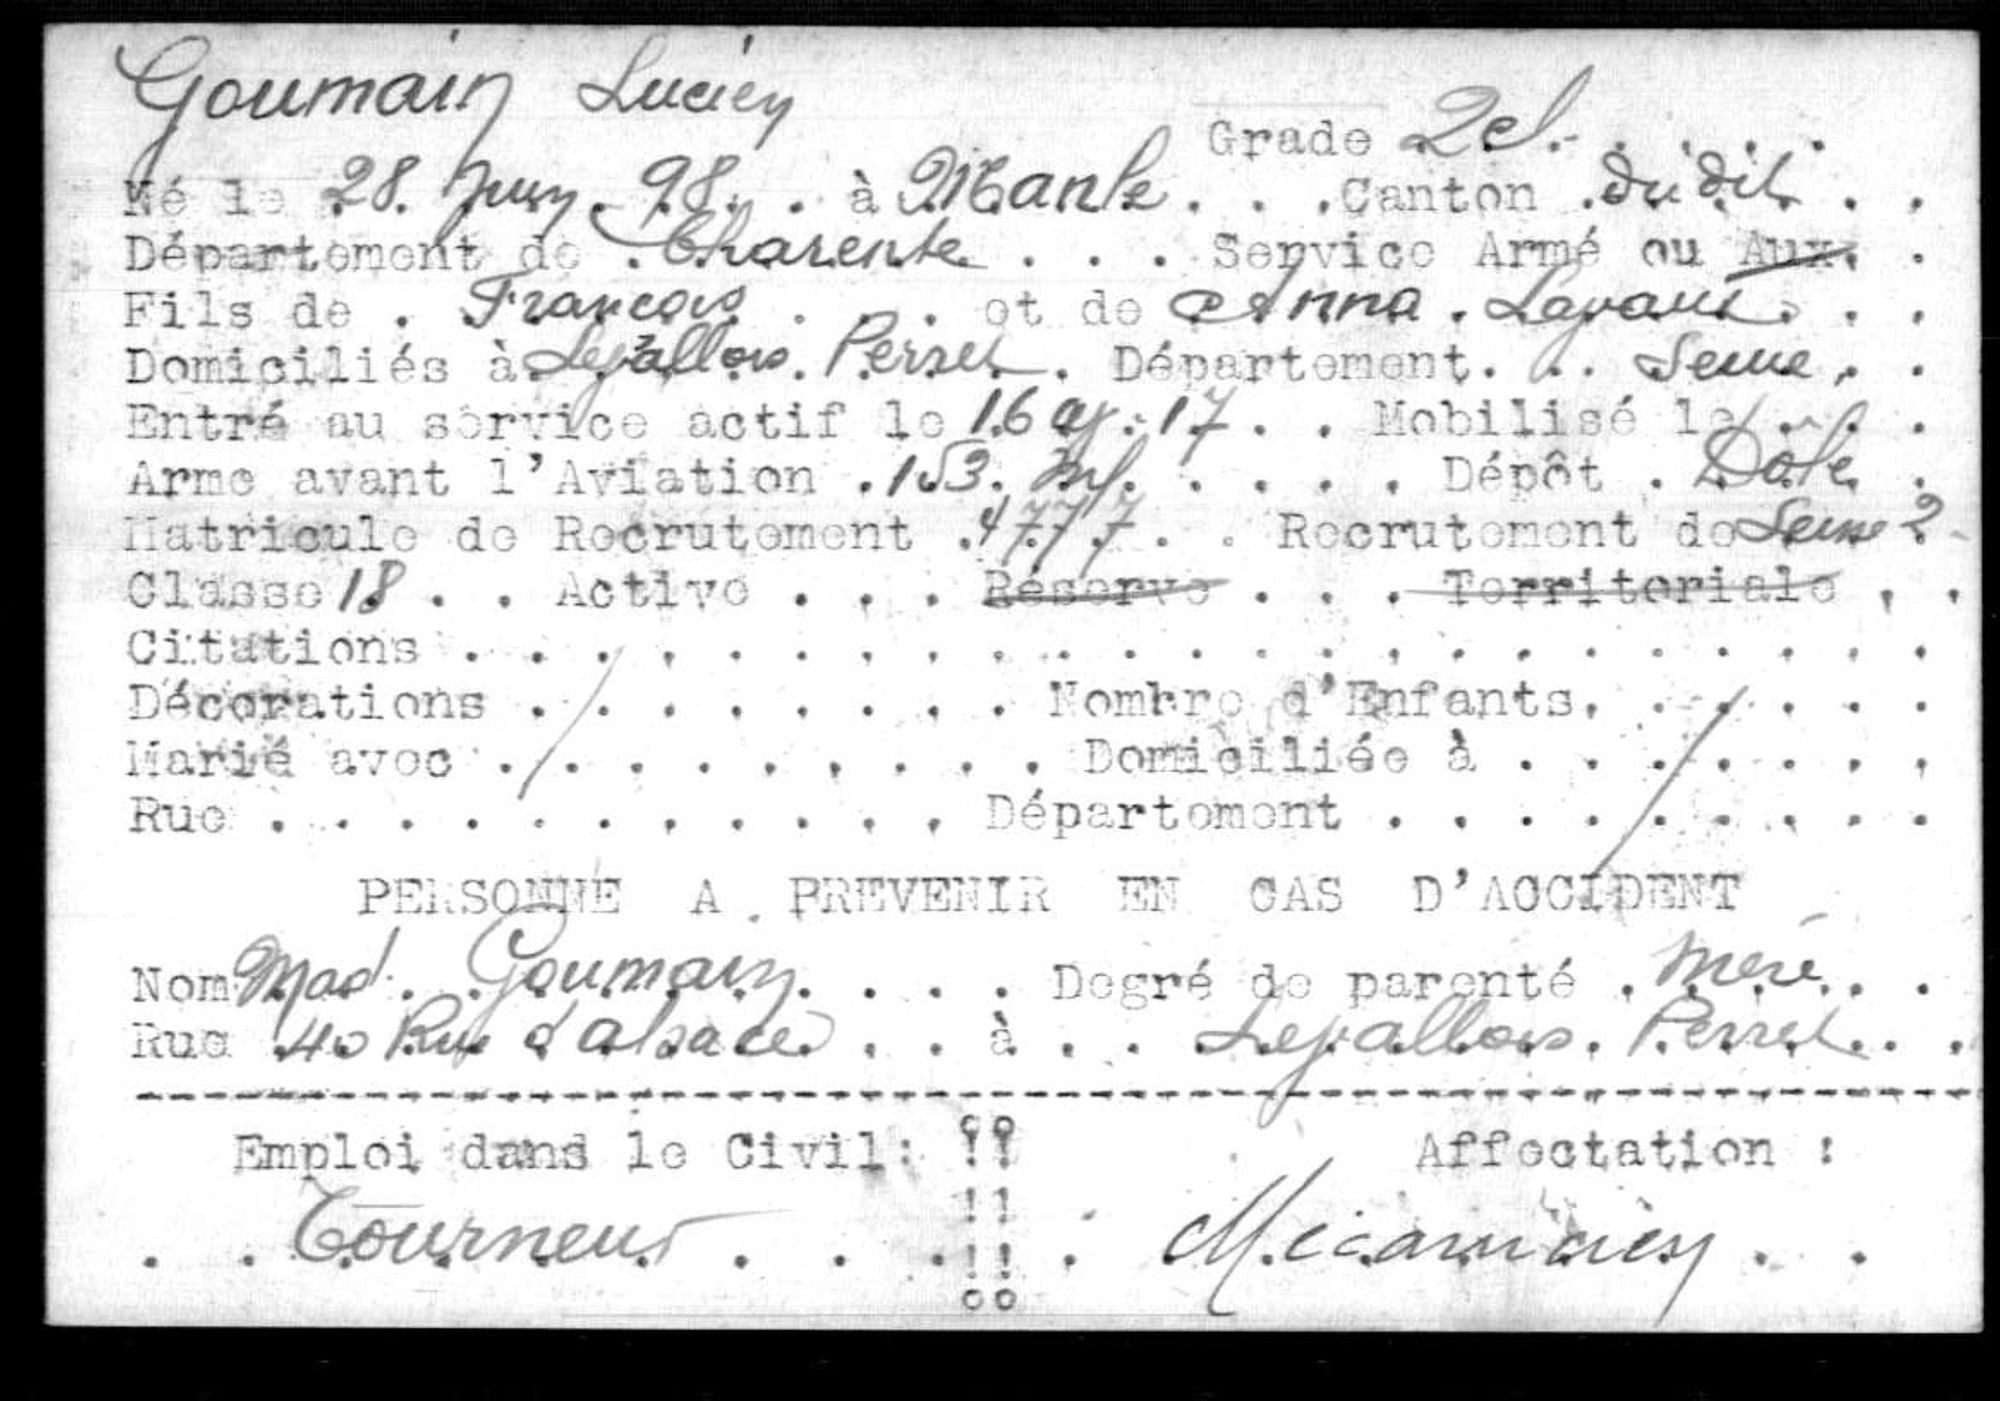 Goumain Lucien
Grade 2cl.
Né le 28 Juin 98 à Mansle Canton dudit
Département de Charente Service Armé ou Aux.
Fils de François et de Anna
Domiciliés à Levallois Perret Département Seine
Entré au service actif le 16 17 Mobilisé le
Arme avant l'Aviation 153 Inf. Dépôt Dôle
Matricule de Recrutement 4777 Recrutement de Seine 2
Classe 18 Active Réserve Territoriale
Citations
Décorations Nombre d'Enfants
Marié avec Domiciliée à
Rue Département
PERSONNE A PREVENIR EN CAS D'ACCIDENT
Nom Mad. Goumain Degré de parenté mère
Rue 40 Rue d'alsace à Levallois Perret
Emploi dans le Civil: Affectation :
Tourneur Mécanicien